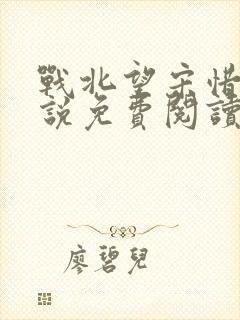 戰北望宋惜
說免費閱讀
廖碧兒